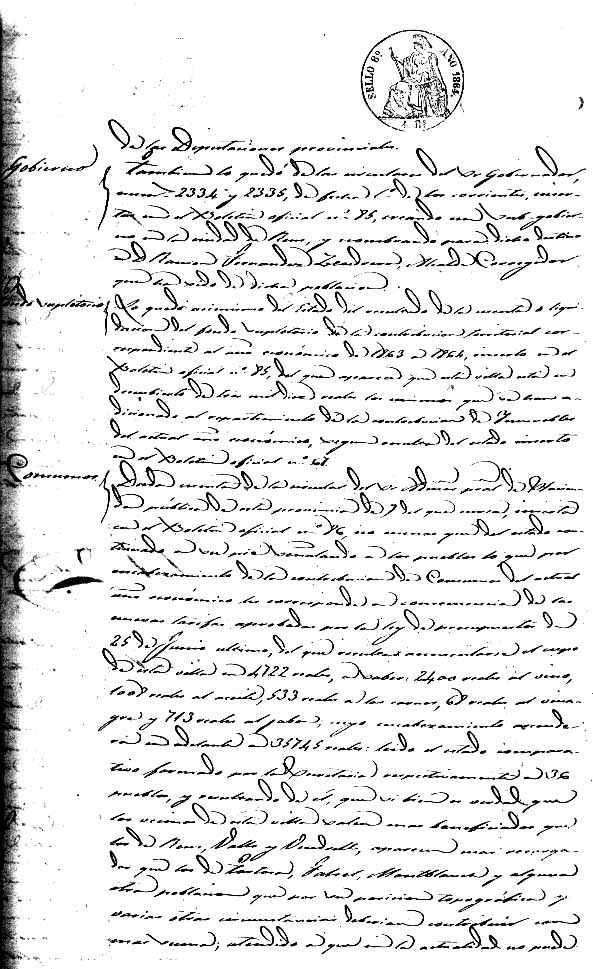 SELLO 8º AÑO 1864.
4 Rs
de las Diputaciones provinciales.
Gobierno
Tambien lo quedó de las circulares del Sr Gobernador,
num.s 2334 y 2335, de fecha 1º de los corrientes, incer-
tas en el Boletin oficial nº 75, creando un sub-gobier-
no en la ciudad de Reus, y nombrando para dicho destino
a D. Ramon Fernandez, Alcalde Corregidor
que ha sido de dicha poblacion.
supletorio
Lo quedó asimismo del Estado del resultado de la cuenta o liqui-
dacion del fondo supletorio de la contribucion territorial cor-
respondiente al año económico de 1863 a 1864, incerto en el
Boletin oficial nº 75, del que aparece que esta villa está en
descubierto de
adicionado al repartimiento de la contribucion de Inmuebles
del actual año económico, segun resulta del estado incerto
en el Boletin oficial nº
Consumos
Dada cuenta de la circular del Sr Admor pral de Hacien-
da pública de esta provincia de 7 del que cursa, incerta
en el Boletin oficial nº 76, no menos que del estado con-
tinuado a su pie señalando a los pueblos lo que por
encabezamiento de la contribucion de Consumos del actual
año económico les corresponde a consecuencia de las
nuevas tarifas aprobadas por la ley de presupuestos de
25 de Junio ultimo, del que resulta aumentarse el cupo
de esta villa en 4722 reales, a saber: 2400 reales al vino,
1008 reales al aceite, 533 reales a las carnes, 68 reales al vina-
gre y 713 reales al jabon, cuyo encabezamiento ascende-
rá en adelante a 35745 reales: leido el estado compara-
tivo formado por la Secretaria respectivamente a 36
pueblos, y resultando de él, que si bien es verdad que
los vecinos de esta villa salen mas beneficiados que
los de Reus, Valls y Vendrell, aparecen mas recarga-
dos que los de Tortosa, Falset, Montblanch y alguna
otra poblacion que por su posicion topográfica y
varias otras circunstancias deberian contribuir con
mas suma; atendido a que en la actualidad no puede